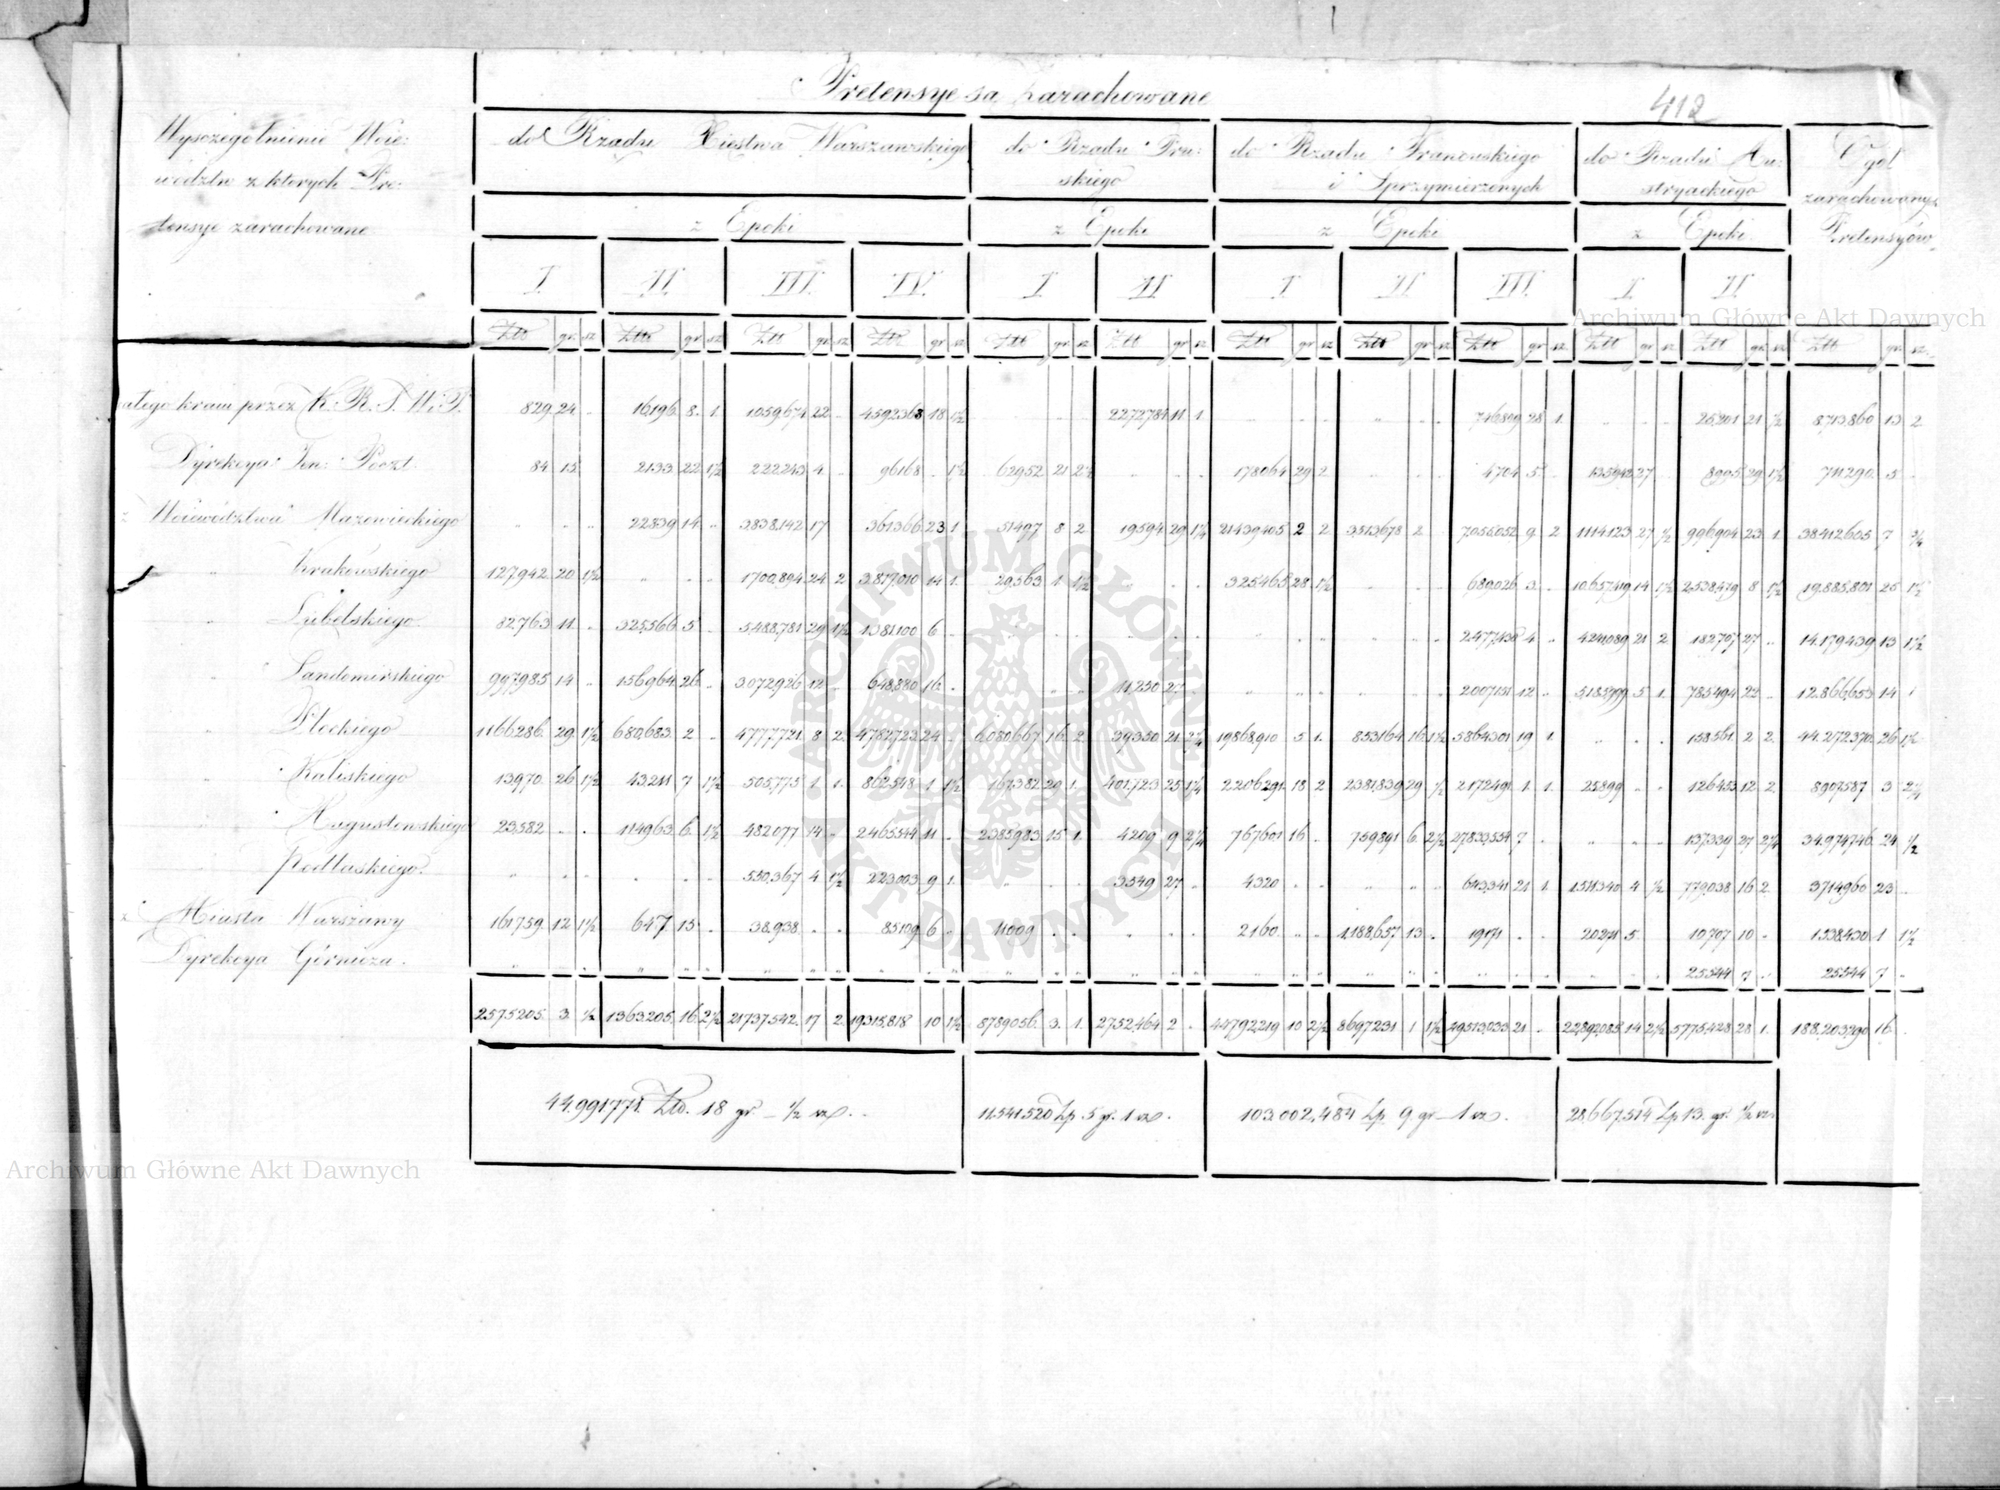 412
Pretensye są zarachowane
Wyszczególnienie Woie:
wództw z których Pre:
tensye zarachowane
do Rządu Xięstwa Warszawskiego
do Rządu Pru:
skiego
do Rządu Francuskiego
i Sprzymierzonych
do Rządu Au:
stryackiego
Ogół
zarachowanych
Pretensyów
z Epoki z Epoki z Epoki z Epoki
I II III IV I II I II III I II
Złt gr sz Złt gr sz Złt gr sz Złt gr sz Złt gr sz Złt gr sz Złt gr sz Złt gr sz Złt gr sz Złt gr sz Złt gr sz Złt gr sz
całego kraiu przez K. R. S. W. P. 829 24 16,196 8 1 1,059,674 22 4,592,368 18 1½ 2,272,784 11 1 746,809 28 1 25,201 21 ½ 8,713,860 13 2
Dyrekcya Jen: Poczt. 84 15 2133 22 1½ 222,243 4 96168 1½ 62952 21 178064 29 2 4704 5 135942 27 8905 29 1½ 711290 5
z Województwa Mazowieckiego 22839 14 3,838,142 17 361366 23 1 51497 8 2 19594 29 21439405 2 2 3,513,678 2 7,055,052 9 2 1114123 27 ½ 996904 23 1 38,412,605 7 ¾
Krakowskiego 127,942 20 1½ 1,700,894 24 2 3,817,010 14 1 29,563 1 1½ 325465 28 1½ 680,026 3 10,657,419 14 1½ 2,538,479 8 1½ 19,885,801 25 1½
Lubelskiego 82,763 11 325,566 5 5,488,781 29 1½ 1,381,100 6 2,477,430 4 4241,089 21 2 182707 27 14,179,439 13 1½
Sandomirskiego 997,985 14 156,964 26 3,072,926 12 648,880 16 11230 27 2007151 12 5185999 5 1 785494 22 12,866,653 14 1
Płockiego 1166286 29 1½ 680,683 2 4777,721 8 2 4782,723 24 6,080,667 16 2 39330 21 19868,910 5 1 853164 16 1½ 5864301 19 1 158561 2 2 44,272,370 26 1½
Kaliskiego 13970 26 1½ 43,241 7 1½ 505,775 1 1 862,548 1 1½ 167,382 20 1 401,723 25 2206291 18 2 2,381,839 29 ½ 2172491 1 1 25899 126453 12 2 8907587 3
Augustowskiego 23,582 114963 6 1½ 482077 14 2465544 11 2385983 15 1 4209 9 767601 16 759891 6 2½ 27833,554 7 137339 27 34,974,746 24 ½
Podlaskiego 550,367 4 1½ 223003 9 1 3,549 27 4320 643,341 21 1 1511340 4 ½ 779,038 16 2 3714960 23
Miasta Warszawy 161759 12 1½ 647 15 38,938 85109 6 11009 2160 1,188,657 13 19171 20271 5 10,707 10 1,538,430 1 1½
Dyrekcya Górnicza 25544 7 25544 7
2,575,205 3 ½ 1,363,205 16 2½ 21,737,542 17 2 19,315,818 10 1½ 8789056 3 1 2,752,464 2 44,792,219 10 2½ 8,697,231 1 1½ 49,513,033 21 22,892,085 14 2½ 5,775,428 28 1 188,203,290 16
44,991,771 Złt. 18 gr – ½ sz. 11,541,520 Zp. 5 gr. 1 sz. 103,002,484 Zp. 9 gr – 1 sz. 28,667,514 Zp. 13 gr. ½ sz.
Archiwum Główne Akt Dawnych
ARCHIWUM GŁÓWNE AKT DAWNYCH
Archiwum Główne Akt Dawnych